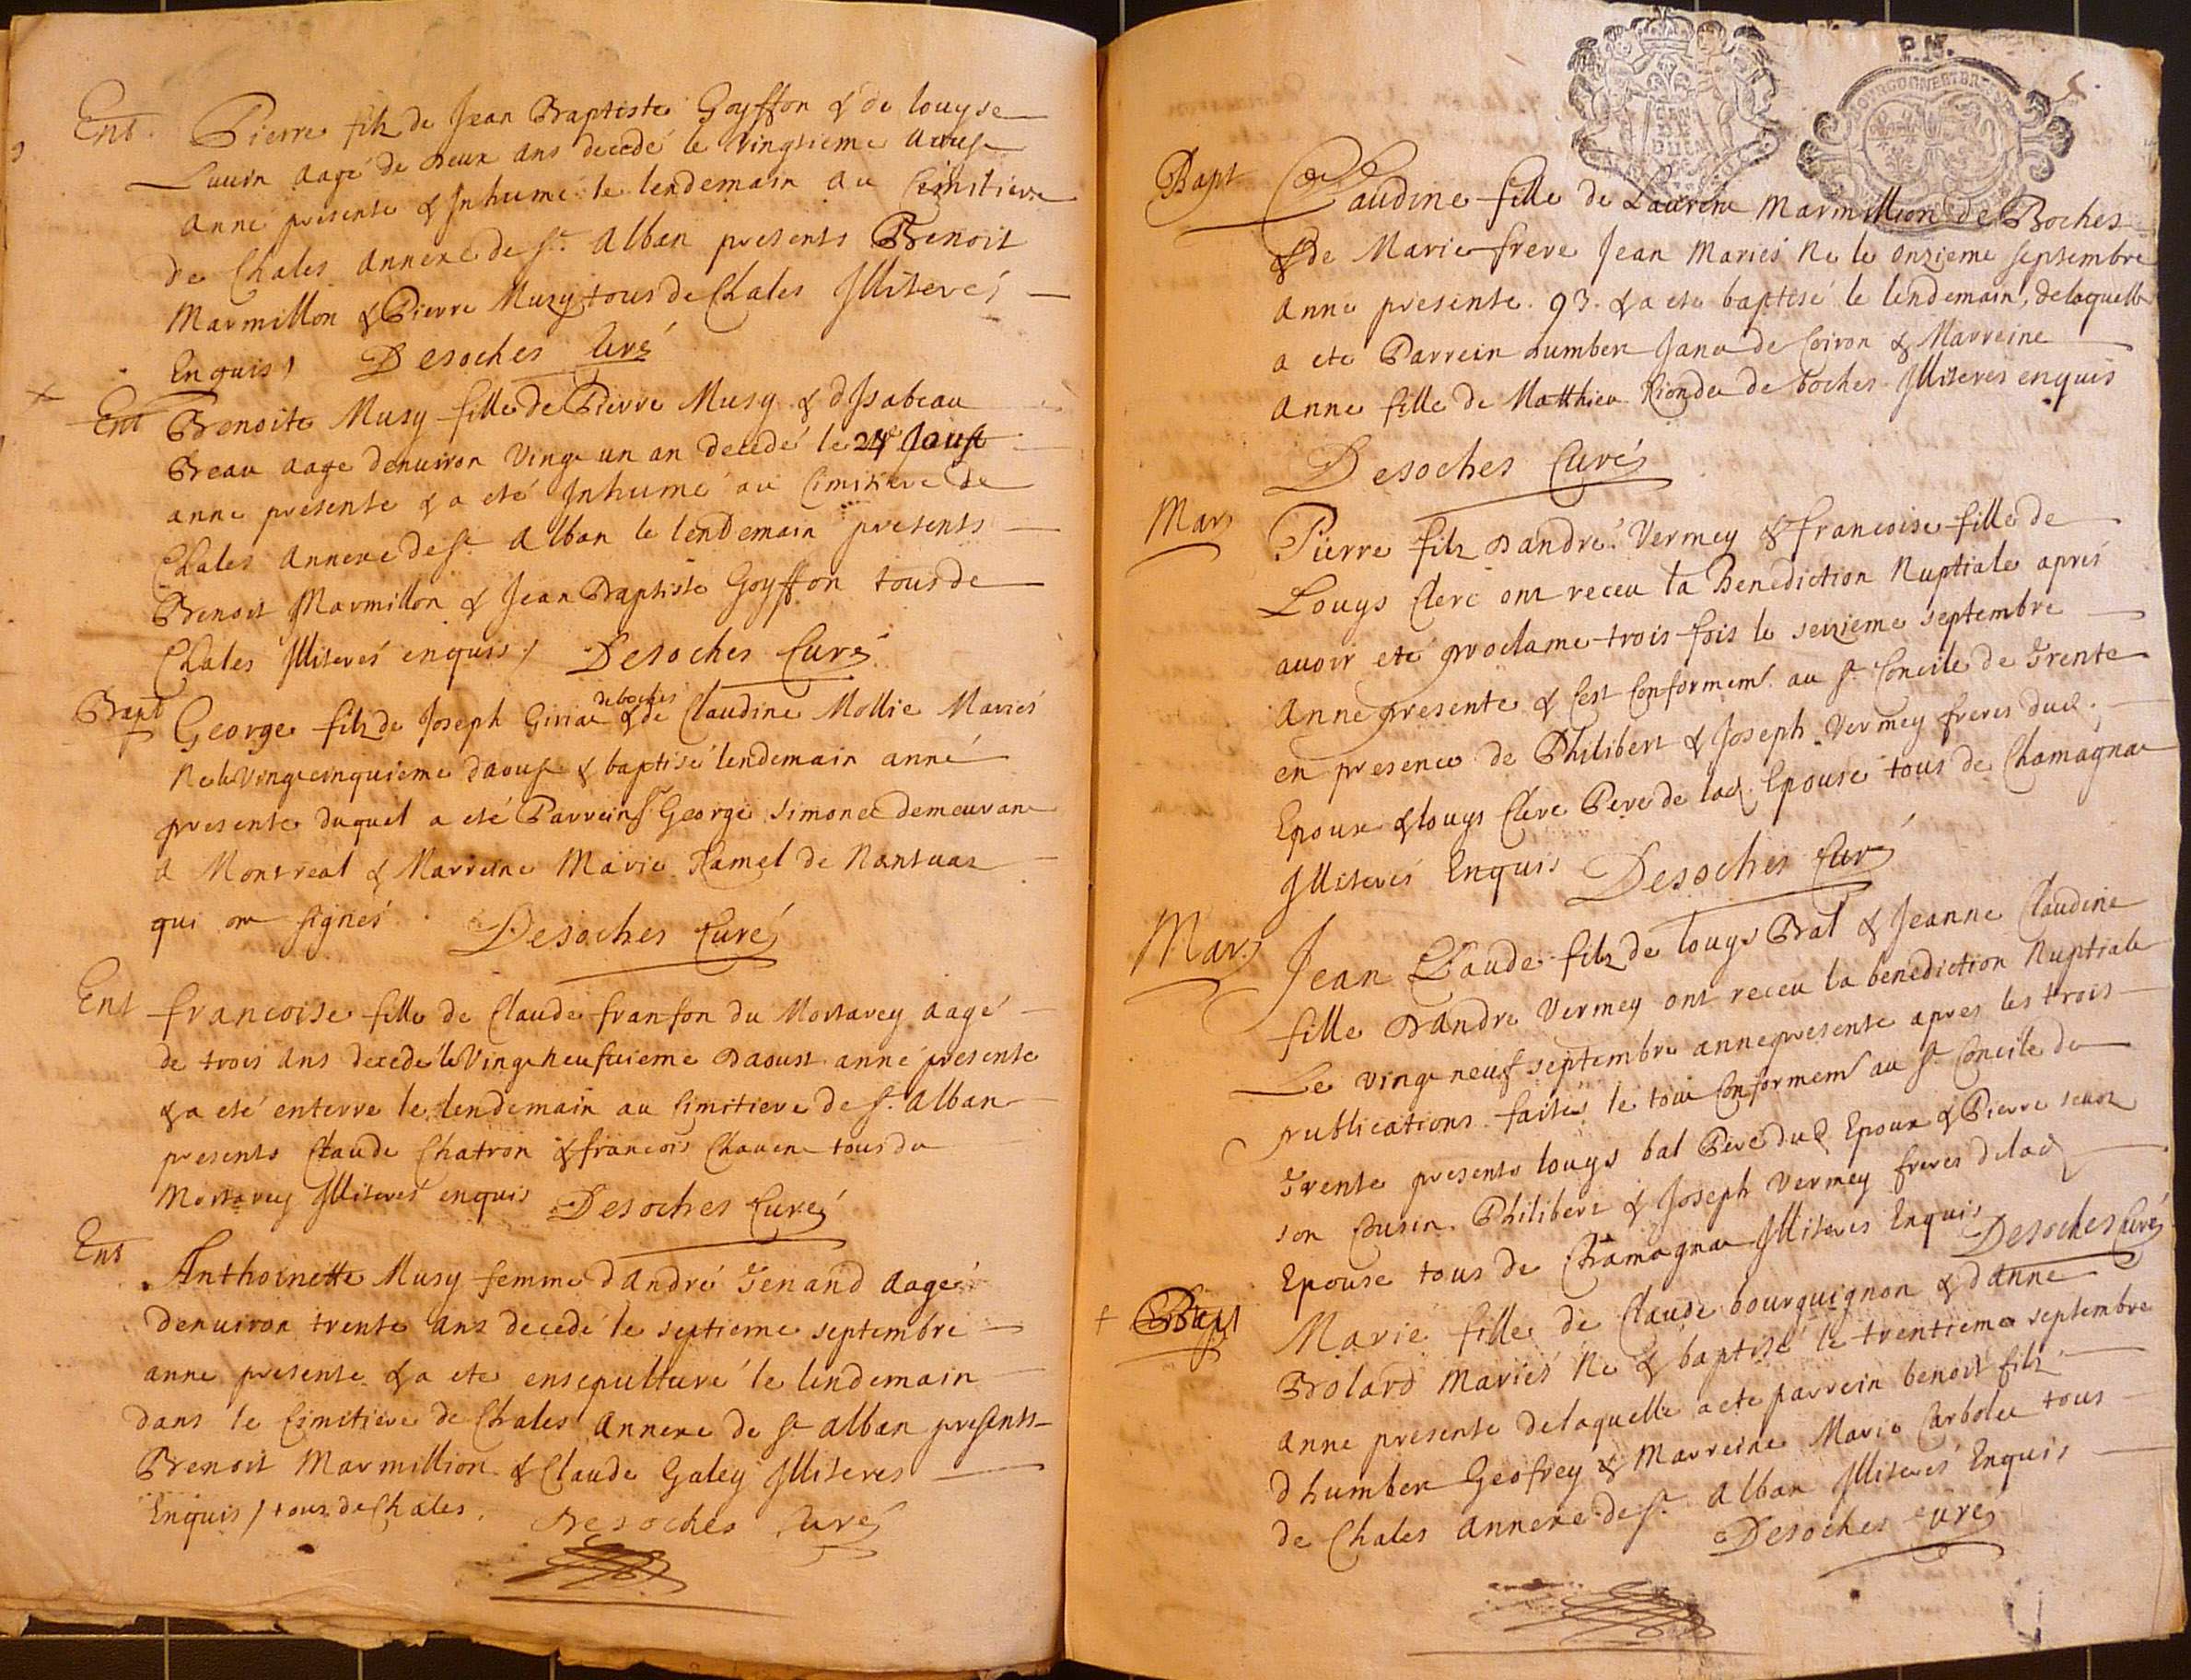 Ent. Pierre filz de Jean Baptiste Goyffon & de louyse
Luurn aagé de deux ans decedé le vingtieme aoust
anne presente & Inhumé le lendemain au Cimitiere
de Chales annexe de st. Alban presents Benoit
Marmillon & Pierre Muzy tous de Chales Illiterés
Enquis / Desoches Curé
Ent Benoite Musy fille de Pierre Musy & d Isabeau
Breau aage denuiron vingt un an decedé le 24e Aoust
anne presente & a eté Inhumé au Cimitiere de
Chales annexe de st. Alban le lendemain presents
Benoit Marmillon & Jean Baptiste Goyffon tous de
Chales Illiterés enquis / Desoches Curé
de boches
Bapt George filz de Joseph & de Claudine Mollie Mariés
Ne le vingt cinquieme daoust & baptisé lendemain anné
presente duquel a eté Parrein sr. George Simonet demeurant
a Montreal & Marreine Marie Ramel de Nantuaz
qui ont signés. Desoches Curé
Ent francoise fille de Claude franfon du Mortarey aagé
de trois ans decedé le vingt neufuieme Daoust anné presente
& a eté enterre le lendemain au Cimitiere de st. Alban
presents Claude Chatron & francois Chauent tous du
Mortarey Illiterés enquis Desoches Curé
Ent Anthoinette Musy femme d André Jenand aagé
denuiron trente ans decedé le septieme septembre
anne presente & a ete ensepulturé le lendemain
dans le Cimitiere de Chales annexe de st alban presents
Benoit Marmillion & Claude Galey Illiteres
Enquis / tous de Chales. Desoches Curé
P.M.
BOURGOGNE ET BRESSE
Bapt Claudine fille de Laurent Marmillion de Boches
& de Marie frere Jean Mariés Ne le onzieme septembre
anne presente. 93. & a ete baptisé le lendemain, de laquelle
a ete Parrein humbert Janet de Coiron & Marreine
Anne fille de Matthieu Riondet de boches Illiteres enquis
Desoches Curé
Mar Pierre filz Dandré Vermey & francoise fille de
Louys Clerc ont receu la Benediction Nuptiale aprés
auoir eté proclamé trois fois le seizieme septembre
Anne presente & Cest Conformemt. au st Concile de Trente
en presence de Philibert & Joseph Vermey freres dud.
Epoux & louys Clerc Pere de lad. Epouse tous de Chamagnat
Illiterés Enquis Desoches Curé
Mar Jean Claude filz de louys Bal & Jeanne Claudine
fille Dandre Vermey ont receu la benediction Nuptiale
Le vingt neuf septembre anne presente apres les trois
publications faites le tout Conformemt au st Concile de
Trente presents louys bal Pere dud Epoux & Pierre
son Cousin. Philibert & Joseph Vermey freres delad
Epouse tous de Chamagnat Illiteres Enquis Desoches Curé
Bapt Marie fille de Claude bourguignon & d anne
Brolard Mariés Ne & baptisé le trentieme septembre
anne presente de laquelle a ete parrein benoit filz
d humbert Geofrey & Marreine Marie Carbolet tous
de Chales annexe de st. Alban Illiterés Enquis
Desoches Curé